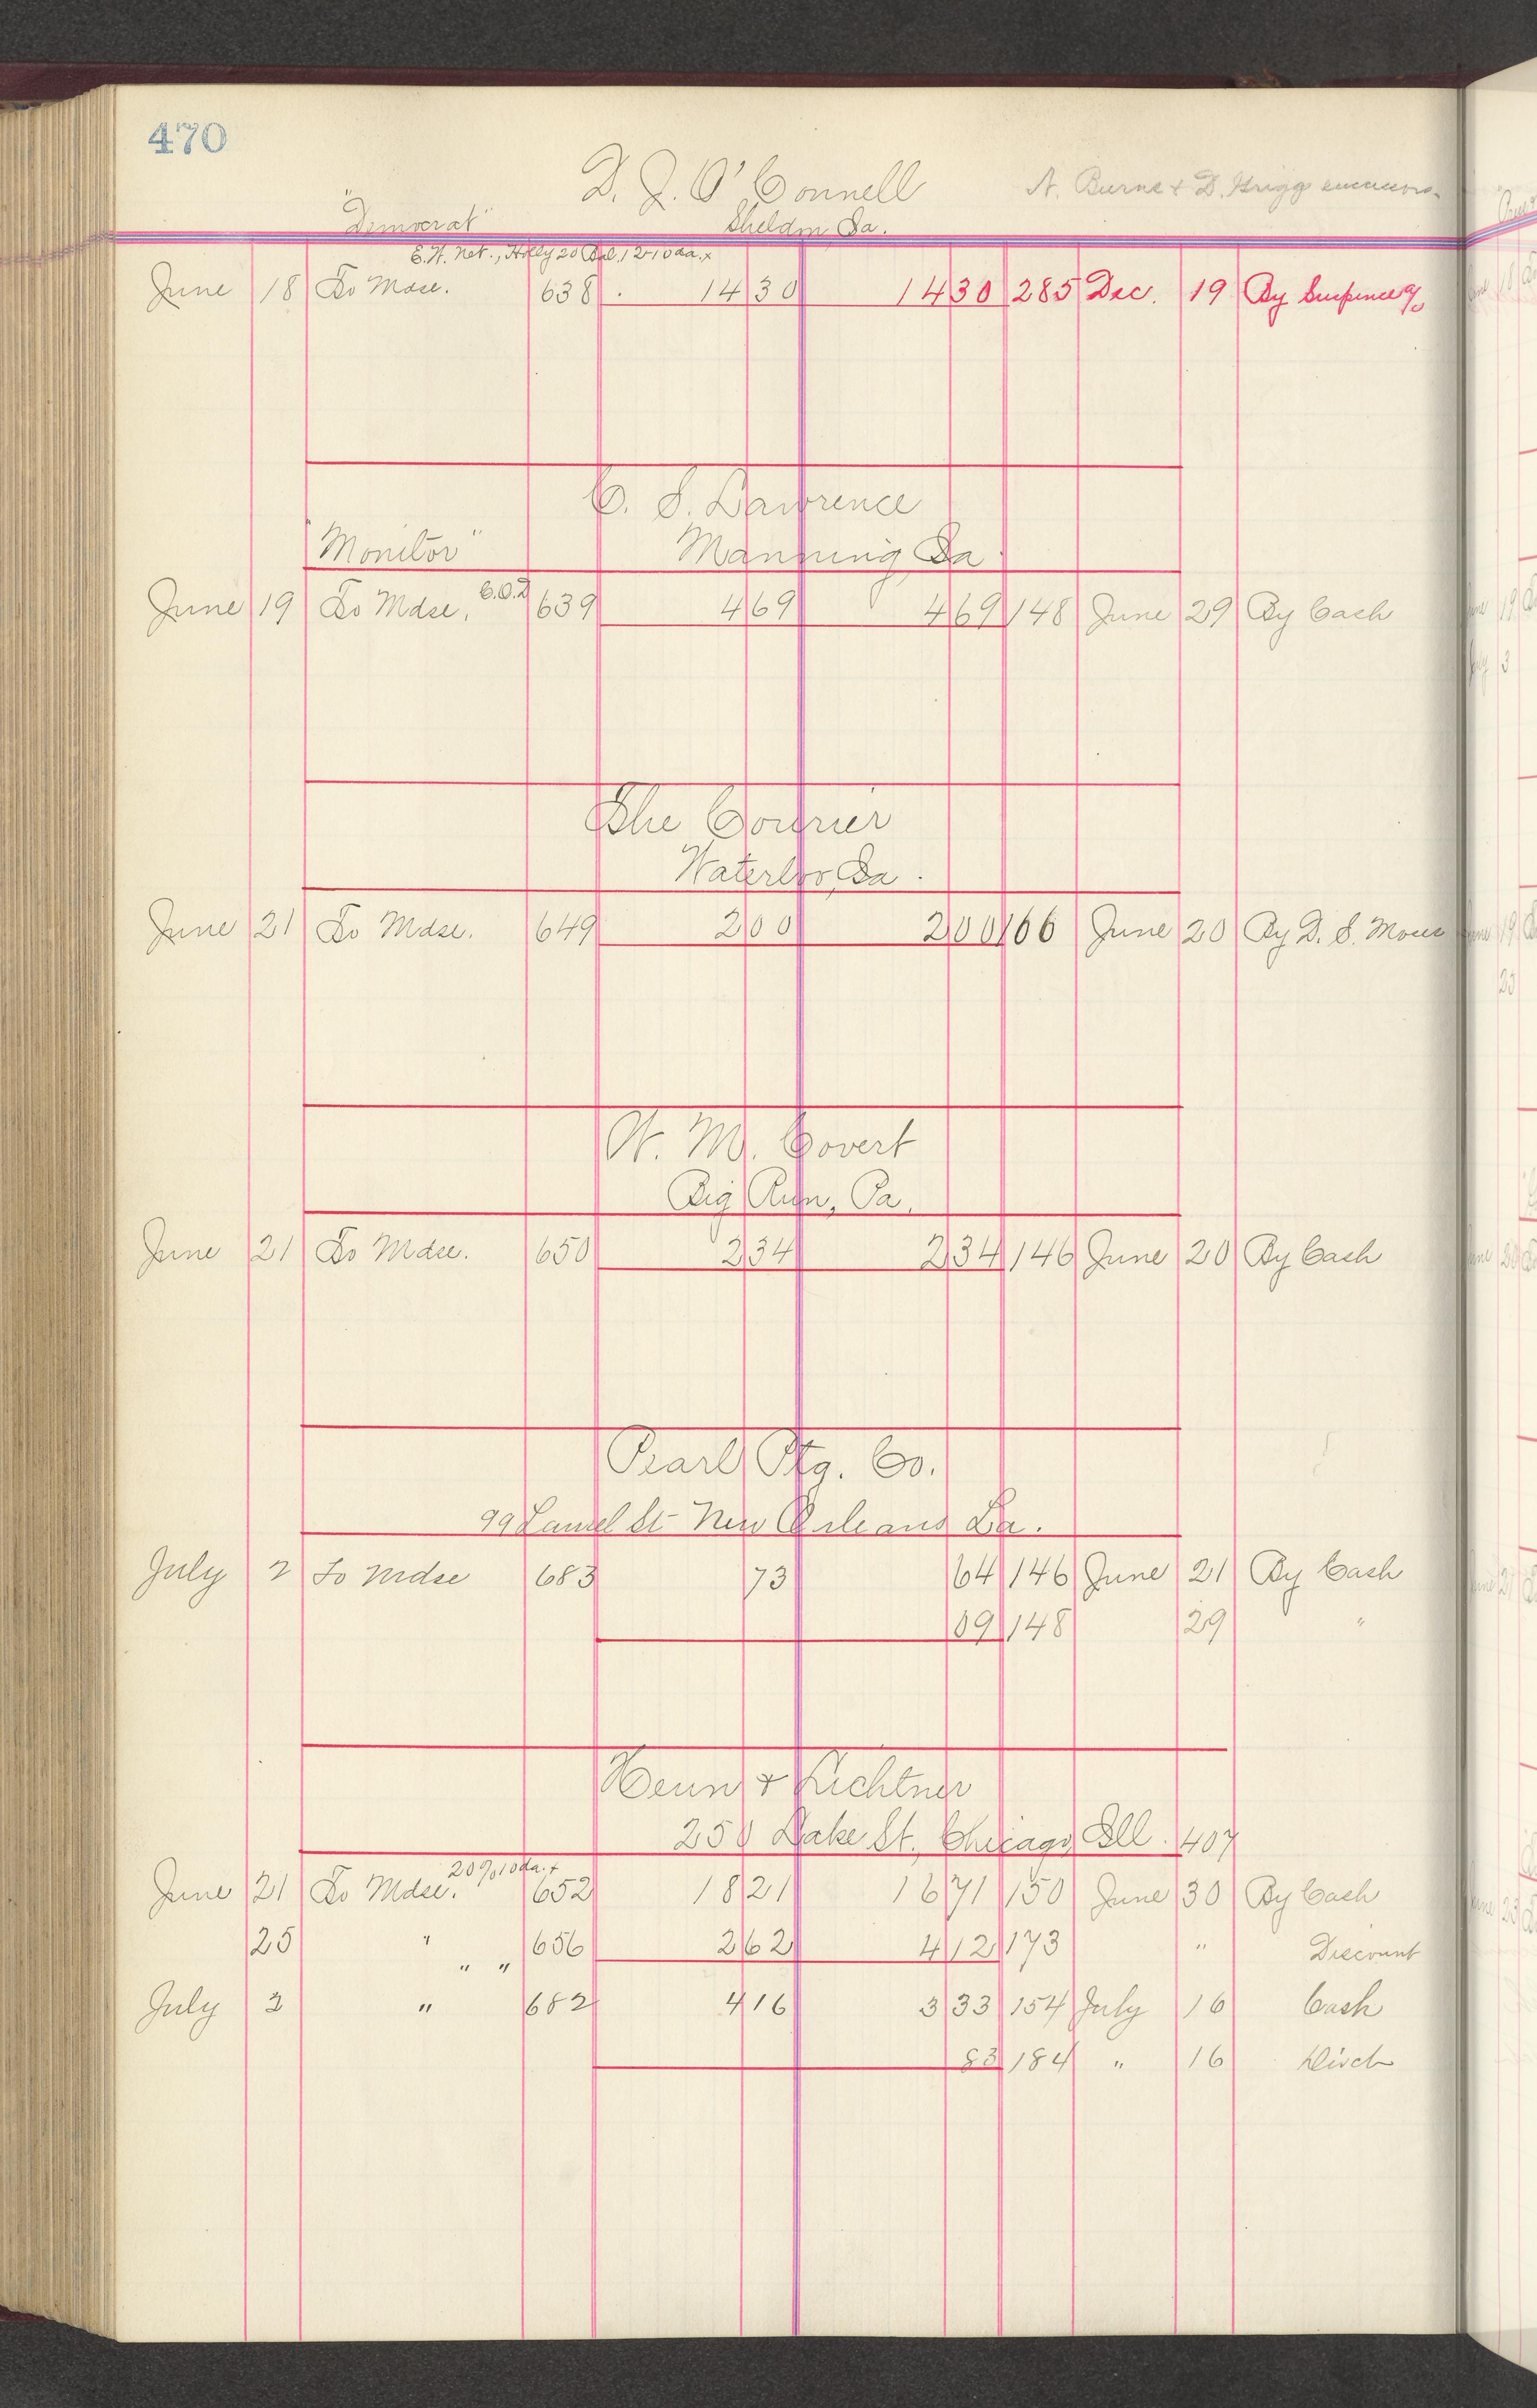 470
D. J. O'Connell
A. Burns & D. Grigg successors
"Democrat"
Sheldon Ia.
E.W. Net., Holly 20 Bal. 12-10 da. x
June 18 To Mdse. 638 14 30 14 30 285 Dec. 19 By Suspence a/c
C. S. Lawrence
"Monitor" Manning Ia.
June 19 To Mdse. C.O.D 639 4 69 4 69 148 June 29 By Cash
The Courier
Waterloo, Ia.
June 21 To Mdse. 649 2 00 2 00 166 June 20 By D. S.
W. M. Covert
Big Run, Pa.
June 21 To Mdse. 650 2 34 2 34 146 June 20 By Cash
Pearl Ptg. Co.
99 Laurel St New Orleans La.
July 2 To Mdse 683 73 64 146 June 21 By Cash
09 148 29 "
Henn &
250 Lake St. Chicago, Ill. 407
20% 10 da. +
June 21 To Mdse. 652 18 21 16 71 150 June 30 By Cash
25 " 656 2 62 4 12 173 " Discount
" "
July 2 " 682 4 16 3 33 154 July 16 Cash
83 184 " 16 Disct